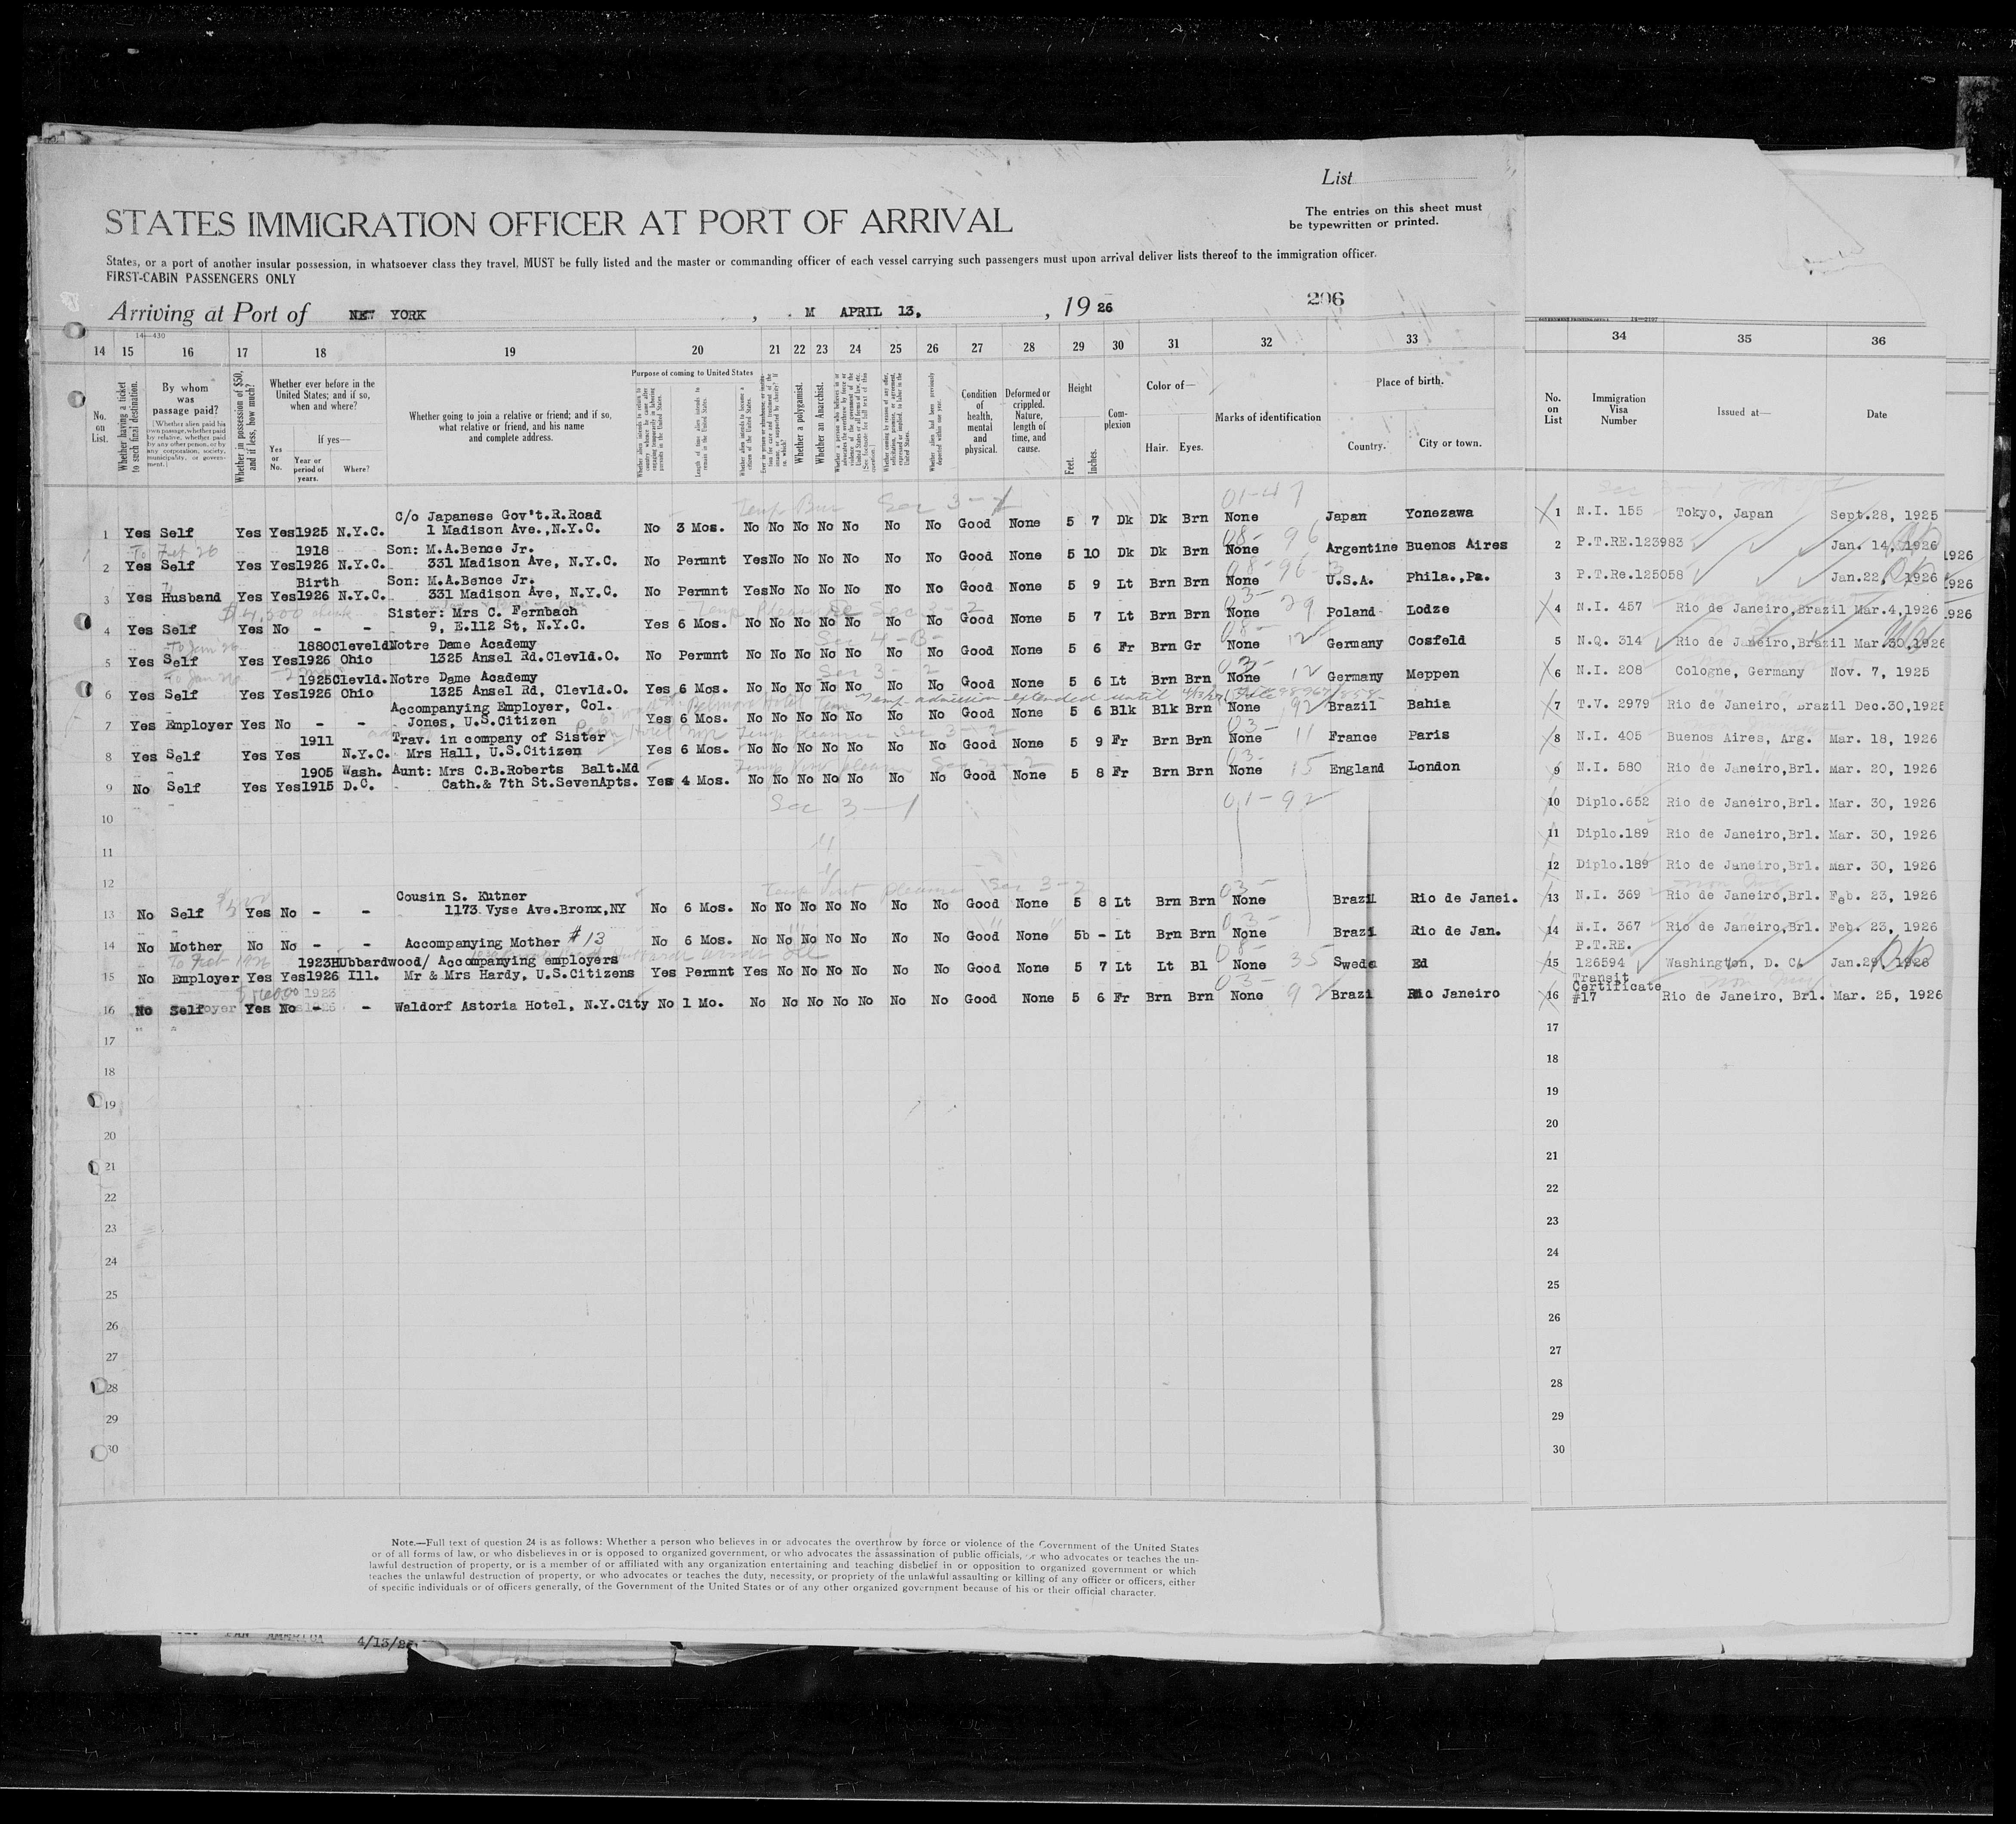 List
STATES IMMIGRATION OFFICER AT PORT OF ARRIVAL
The entries on this sheet must
be typewritten or printed.
States, or a port of another insular possession, in whatsoever class they travel, MUST be fully listed and the master or commanding officer of each vessel carrying such passengers must upon arrival deliver lists thereof to the immigration officer.
FIRST-CABIN PASSENGERS ONLY
Arriving at Port of NEW YORK, M APRIL 13, , 19 26
206
14—430
14 15 16 17 18 19 20 21 22 23 24 25 26 27 28 29 30 31 32 33 34 35 36
No. on List.
Whether having a ticket to such final destination.
By whom was passage paid?
(Whether alien paid his own passage, whether paid by relative, whether paid by any other person, or by any corporation, society, municipality, or government.)
Whether in possession of $50, and if less, how much?
Whether ever before in the United States; and if so, when and where?
Yes or No.
If yes—
Year or period of years.
Where?
Whether going to join a relative or friend; and if so, what relative or friend, and his name and complete address.
Purpose of coming to United States
Length of time alien intends to remain in the United States.
Whether alien intends to become a citizen of the United States.
Whether a polygamist.
Whether an Anarchist.
Condition of health, mental and physical.
Deformed or crippled. Nature, length of time, and cause.
Height
Feet. Inches.
Complexion
Color of—
Hair. Eyes.
Marks of identification
Place of birth.
Country. City or town.
No. on List
Immigration Visa Number
Issued at—
Date
Temp Bus Sec 3-2 01-47
C/o Japanese Gov't.R.Road
1 Yes Self Yes Yes 1925 N.Y.C. 1 Madison Ave.,N.Y.C. No 3 Mos. No No No No No No No Good None 5 7 Dk Dk Brn None Japan Yonezawa 1 N.I. 155 Tokyo, Japan Sept.28, 1925
To Feb 26 1918 Son: M.A.Bence Jr. 08-96
2 Yes Self Yes Yes 1926 N.Y.C. 331 Madison Ave, N.Y.C. No Permnt Yes No No No No No No Good None 5 10 Dk Dk Brn None Argentine Buenos Aires 2 P.T.RE.123983 Jan. 14, 1926
Birth Son: M.A.Bence Jr. 08-96
3 Yes Husband Yes Yes 1926 N.Y.C. 331 Madison Ave, N.Y.C. No Permnt Yes No No No No No No Good None 5 9 Lt Brn Brn None U.S.A. Phila.,Pa. 3 P.T.Re.125058 Jan.22, 1926
$4,500 Sister: Mrs C. Fernbach Sec 3-2 03- 29
4 Yes Self Yes No - - 9, E.112 St, N.Y.C. Yes 6 Mos. No No No No No No No Good None 5 7 Lt Brn Brn None Poland Lodze 4 N.I. 457 Rio de Janeiro,Brazil Mar.4,1926
To Jan 26 1880 Cleveld Notre Dame Academy Sec 4-B- 08- 12
5 Yes Self Yes Yes 1926 Ohio 1325 Ansel Rd.Clevld.O. No Permnt No No No No No No No Good None 5 6 Fr Brn Gr None Germany Cosfeld 5 N.Q. 314 Rio de Janeiro,Brazil Mar.30,1926
To Jan 26 1925 Clevld. Notre Dame Academy Sec 3-2 03- 12
6 Yes Self Yes Yes 1926 Ohio 1325 Ansel Rd, Clevld.O. Yes 6 Mos. No No No No No No No Good None 5 6 Lt Brn Brn None Germany Meppen 6 N.I. 208 Cologne, Germany Nov. 7, 1925
Accompanying Employer, Col. Temp admission extended until
7 Yes Employer Yes No - - Jones, U.S.Citizen Yes 6 Mos. No No No No No No No Good None 5 6 Blk Blk Brn None 92 Brazil Bahia 7 T.V. 2979 Rio de Janeiro, Brazil Dec.30,1925
1911 Trav. in company of Sister Sec 3-2 03- 11
8 Yes Self Yes Yes N.Y.C. Mrs Hall, U.S.Citizen Yes 6 Mos. No No No No No No No Good None 5 9 Fr Brn Brn None France Paris 8 N.I. 405 Buenos Aires, Arg. Mar. 18, 1926
1905 Wash. Aunt: Mrs C.B.Roberts Balt.Md Sec 3-2 03- 15
9 No Self Yes Yes 1915 D.C. Cath.& 7th St.SevenApts. Yes 4 Mos. No No No No No No No Good None 5 8 Fr Brn Brn None England London 9 N.I. 580 Rio de Janeiro,Brl. Mar. 20, 1926
Sec 3-1 01-92
10 10 Diplo.652 Rio de Janeiro,Brl. Mar. 30, 1926
11 11 Diplo.189 Rio de Janeiro,Brl. Mar. 30, 1926
12 12 Diplo.189 Rio de Janeiro,Brl. Mar. 30, 1926
Cousin S. Kutner Temp Visit pleasure Sec 3-2 03-
13 No Self Yes No - - 1173 Vyse Ave.Bronx,NY No 6 Mos. No No No No No No No Good None 5 8 Lt Brn Brn None Brazil Rio de Janei. 13 N.I. 369 Rio de Janeiro,Brl. Feb. 23, 1926
03-
14 No Mother No No - - Accompanying Mother #13 No 6 Mos. No No No No No No No Good None 5b - Lt Brn Brn None Brazi Rio de Jan. 14 N.I. 367 Rio de Janeiro,Brl. Feb. 23, 1926
To Feb 1926 1923 HUbbardwood/ Accompanying employers 08- 35 P.T.RE.
15 No Employer Yes Yes 1926 Ill. Mr & Mrs Hardy, U.S.Citizens Yes Permnt Yes No No No No No No Good None 5 7 Lt Lt Bl None Swede Ed 15 126594 Washington, D. C. Jan.29, 1926
1923 03- 92 Transit Certificate
16 No Self Yes No - - Waldorf Astoria Hotel, N.Y.City No 1 Mo. No No No No No No No Good None 5 6 Fr Brn Brn None Brazi Rio Janeiro 16 #17 Rio de Janeiro, Brl. Mar. 25, 1926
17 17
18 18
19 19
20 20
21 21
22 22
23 23
24 24
25 25
26 26
27 27
28 28
29 29
30 30
Note.—Full text of question 24 is as follows: Whether a person who believes in or advocates the overthrow by force or violence of the Government of the United States
or of all forms of law, or who disbelieves in or is opposed to organized government, or who advocates the assassination of public officials, or who advocates or teaches the un-
lawful destruction of property, or is a member of or affiliated with any organization entertaining and teaching disbelief in or opposition to organized government or which
teaches the unlawful destruction of property, or who advocates or teaches the duty, necessity, or propriety of the unlawful assaulting or killing of any officer or officers, either
of specific individuals or of officers generally, of the Government of the United States or of any other organized government because of his or their official character.
PAN AMERICA 4/13/26